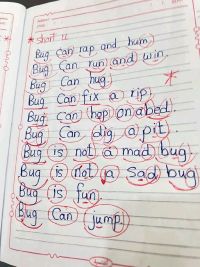 * short u
Bug Can rap and hum.
Bug Can run and win.
Bug Can hug.
Bug Can fix a rip.
Bug Can hop on a bed.
Bug Can dig a pit.
Bug is not a mad bug.
Bug is not a sad bug
Bug is fun.
Bug Can jump